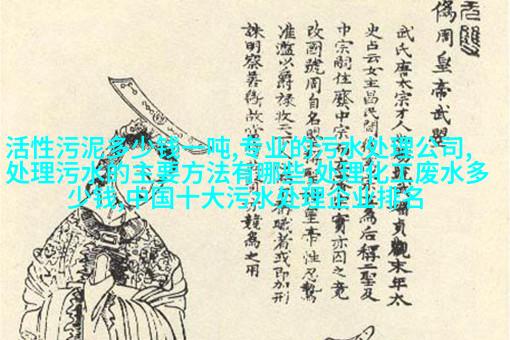 活性污泥多少钱一吨,专业的污水处理公司,
处理污水的主要方法有哪些,处理化工废水多
少钱,中国十大污水处理企业排名
偽周皇帝武曌
武氏唐太宗才人 貞觀末年太
史占云女主昌民間 為后稱二聖及
中宗嗣位廢中宗 實亦囚之竟
改國號周自名曌 皇帝性忍鷙
濫以爵祿收 職者或即加刑
誅明察善斷故當 競為之用